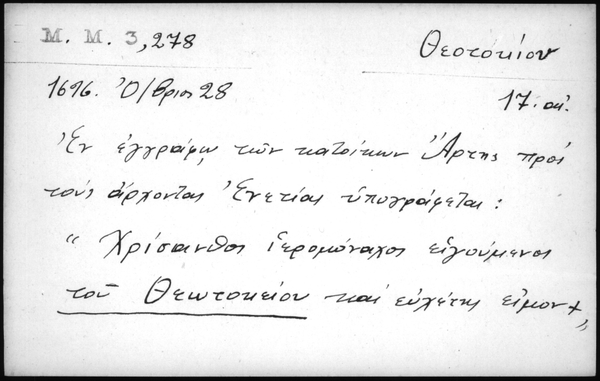 Μ. Μ. 3,278
Θεοτοκίον
1696. Ὀ/βριος 28
17. αἰ.
Ἐν ἐγγράφῳ τῶν κατοίκων Ἄρτης πρός
τούς ἄρχοντας Ἐνετίας ὑπογράφεται:
“ Χρίσανθος ἱερομόναχος εἱγούμενος
τοῦ Θεωτοκείου καί εὐχέτης εἱμον + „